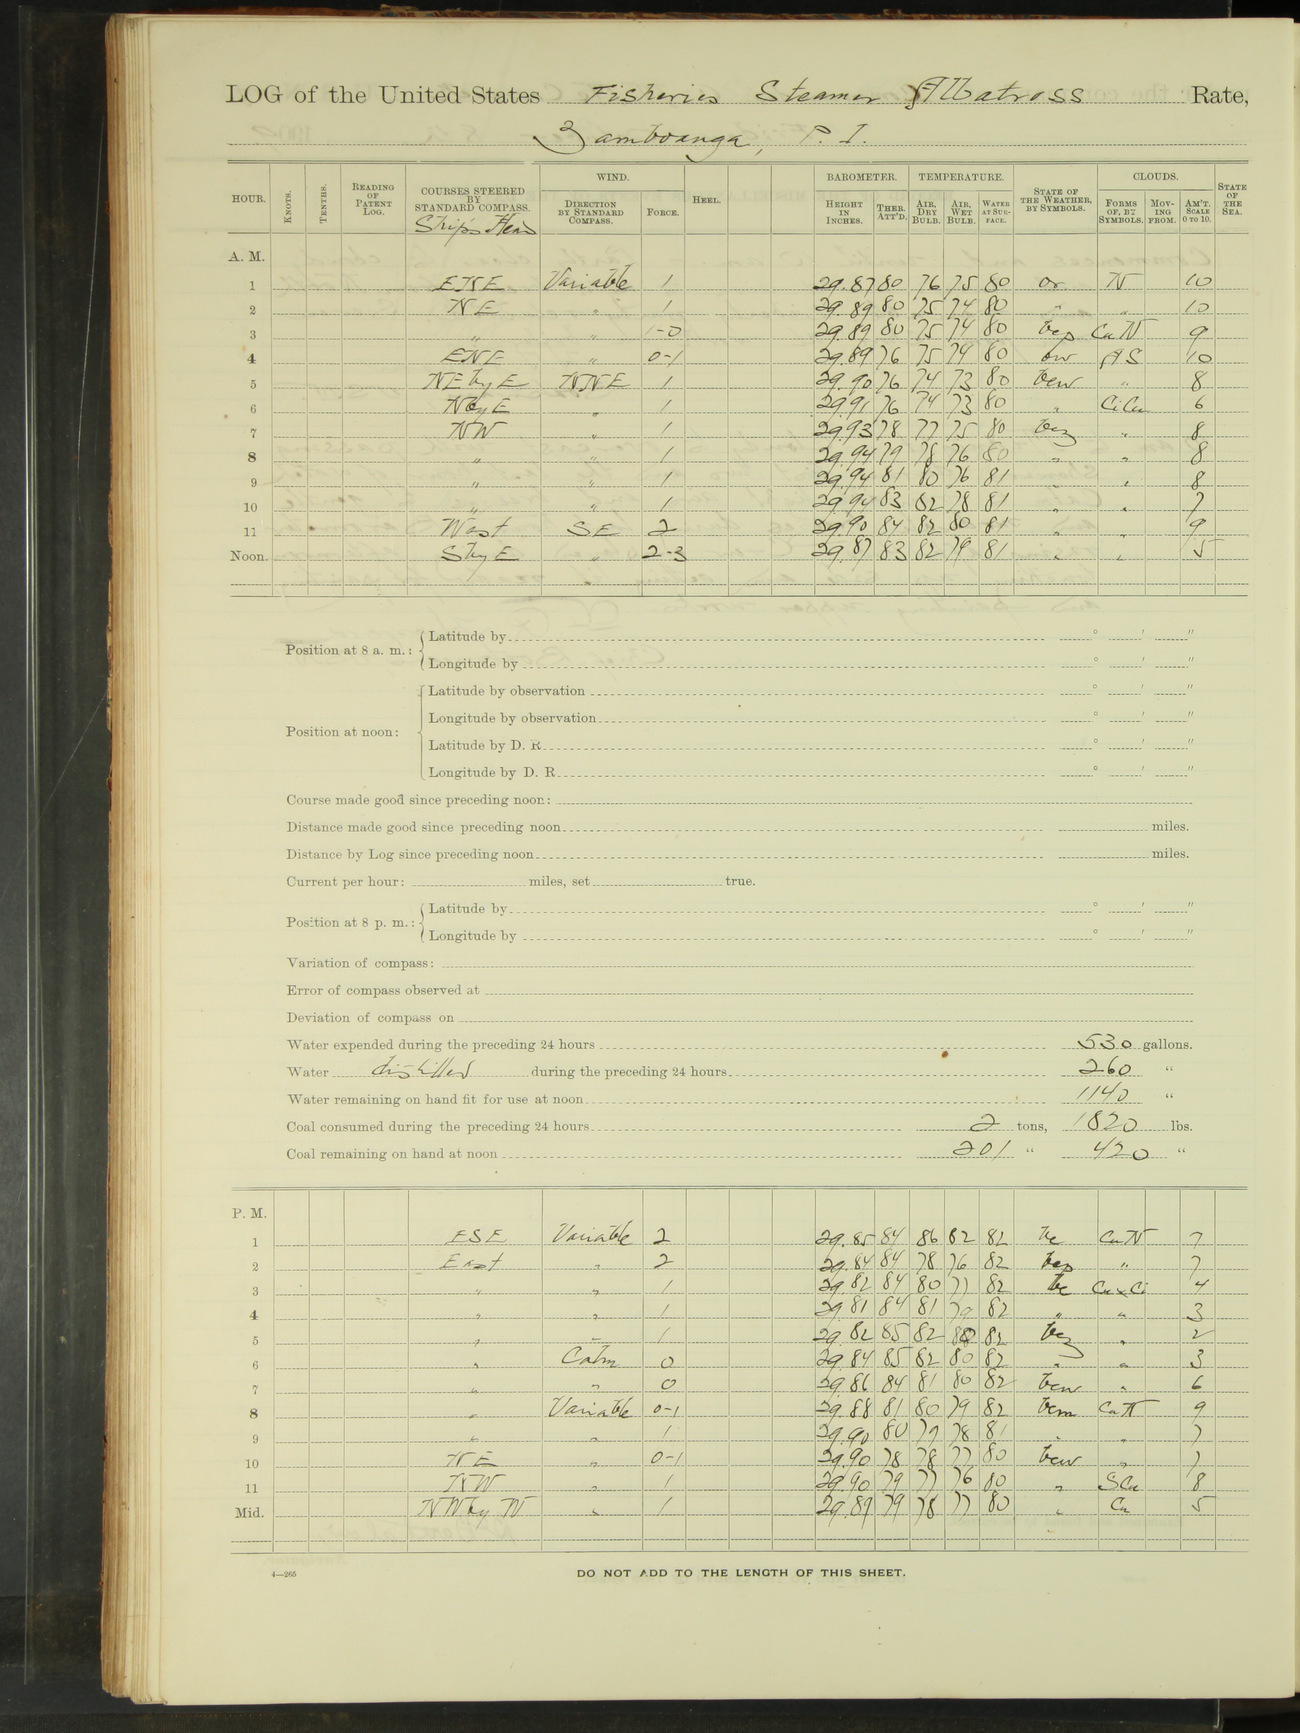 LOG of the United States Fisheries Steamer Albatross Rate,
Zamboanga, P. I.
HOUR. KNOTS. TENTHS. READING OF PATENT LOG. COURSES STEERED BY STANDARD COMPASS. WIND. DIRECTION BY STANDARD COMPASS. FORCE. HEEL. BAROMETER. HEIGHT IN INCHES. THER. ATT'D. TEMPERATURE. AIR, DRY BULB. AIR, WET BULB. WATER AT SURFACE. STATE OF THE WEATHER, BY SYMBOLS. CLOUDS. FORMS OF, BY SYMBOLS. MOVING FROM. AM'T. SCALE 0 TO 10. STATE OF THE SEA.
Ship's Head
A. M.
1 ENE Variable 1 29.87 80 76 75 80 or N 10
2 NE " 1 29.89 80 75 74 80 " " 10
3 " " 1-0 29.89 80 75 74 80 bcp CuN 9
4 ENE " 0-1 29.89 76 75 74 80 ow AS 10
5 NE by E NNE 1 29.90 76 74 73 80 bcw " 8
6 N by E " 1 29.91 76 74 73 80 " CiCu 6
7 NW " 1 29.93 78 77 75 80 bcz " 8
8 " " 1 29.94 79 78 76 80 " " 8
9 " " 1 29.94 81 80 76 81 " " 8
10 " " 1 29.94 83 82 78 81 " " 7
11 West SE 2 29.90 84 82 80 81 " " 9
Noon. S by E " 2-3 29.87 83 82 79 81 " " 5
Position at 8 a. m.: Latitude by ° ' "
Longitude by ° ' "
Position at noon: Latitude by observation ° ' "
Longitude by observation ° ' "
Latitude by D. R. ° ' "
Longitude by D. R. ° ' "
Course made good since preceding noon:
Distance made good since preceding noon miles.
Distance by Log since preceding noon miles.
Current per hour: miles, set true.
Position at 8 p. m.: Latitude by ° ' "
Longitude by ° ' "
Variation of compass:
Error of compass observed at
Deviation of compass on
Water expended during the preceding 24 hours 530 gallons.
Water distilled during the preceding 24 hours 260 "
Water remaining on hand fit for use at noon 1140 "
Coal consumed during the preceding 24 hours 2 tons, 1820 lbs.
Coal remaining on hand at noon 201 " 420 "
P. M.
1 ESE Variable 2 29.85 84 86 82 82 bc CuN 7
2 East " 2 29.84 84 78 76 82 bcp " 7
3 " " 1 29.82 84 80 77 82 bc Cu & Ci 4
4 " " 1 29.81 84 81 79 82 " " 3
5 " " 1 29.82 85 82 80 82 bcz " 2
6 " Calm 0 29.84 85 82 80 82 " " 3
7 " " 0 29.86 84 81 80 82 bcw " 6
8 " Variable 0-1 29.88 81 80 79 82 bcm CuN 9
9 " " 1 29.90 80 79 78 81 " " 7
10 NE " 0-1 29.90 78 78 77 80 bcw " 7
11 NW " 1 29.90 79 77 76 80 " SCu 8
Mid. NW by N " 1 29.89 79 78 77 80 " Cu 5
4—265
DO NOT ADD TO THE LENGTH OF THIS SHEET.